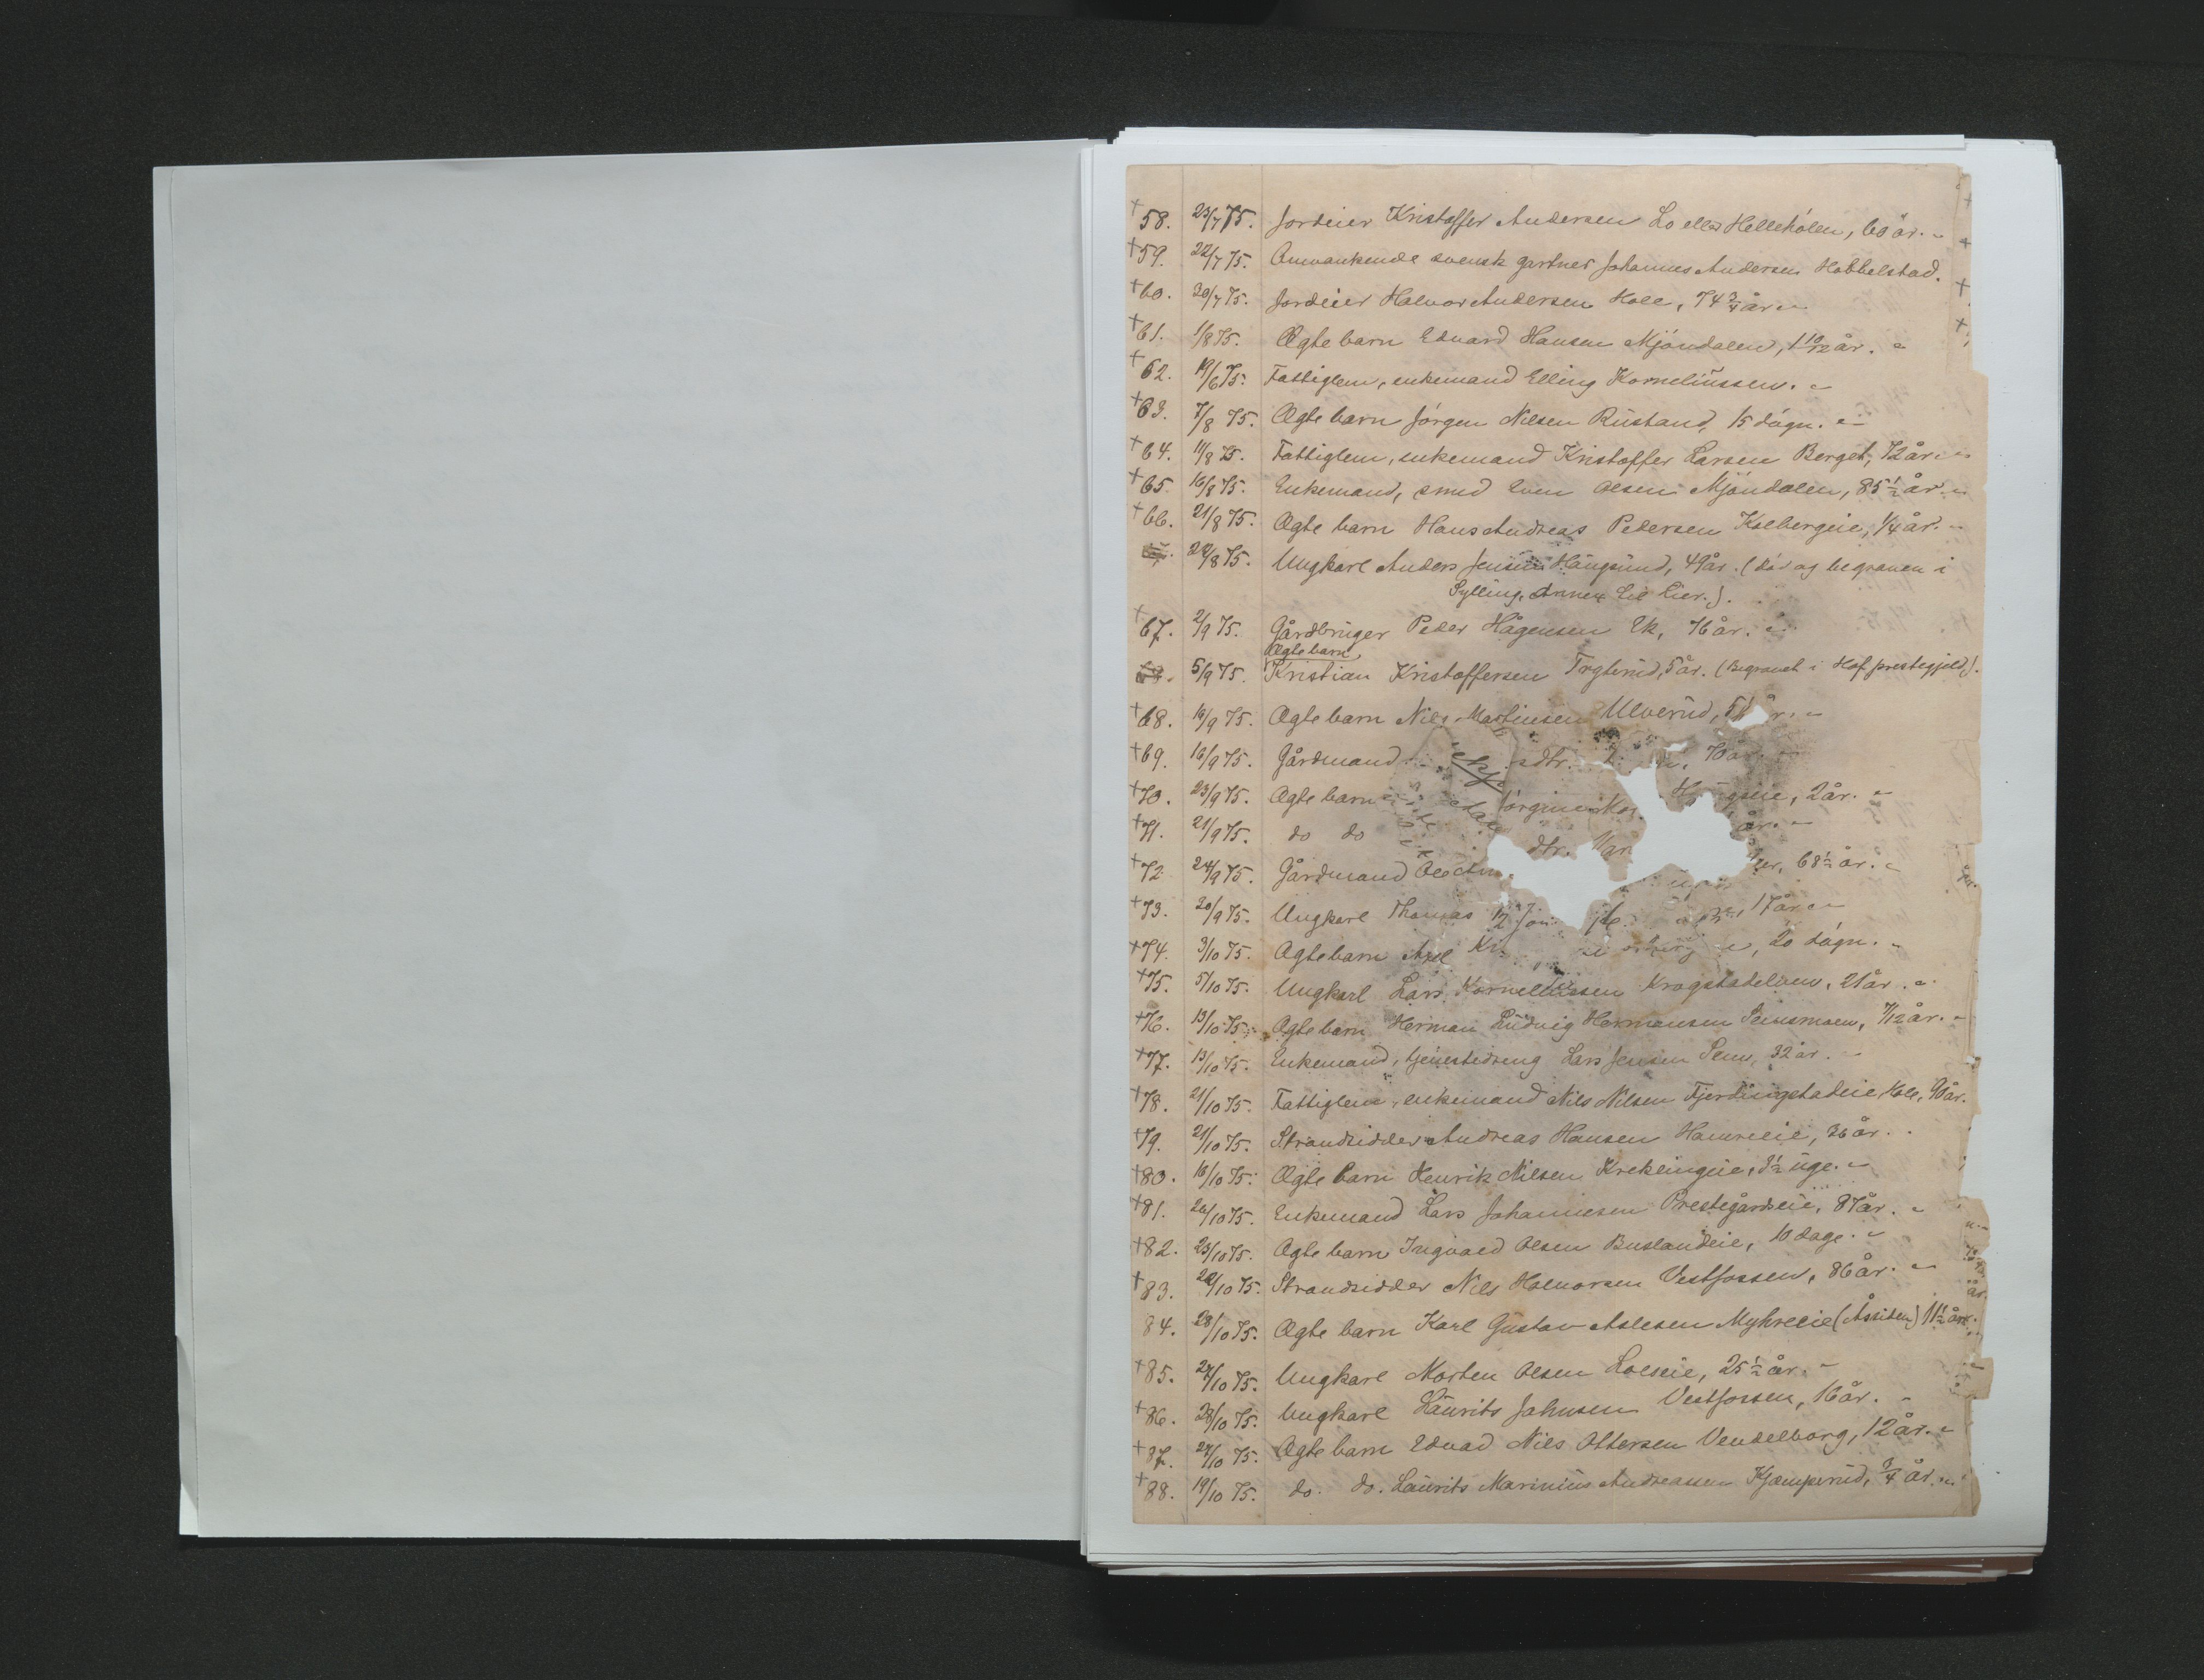 +58. 23/7 75. Jordeier Kristoffer Andersen Lo eller Hellehólen, 60 år. -
+59. 22/7 75. Omvankende svensk gartner Johannes Andersen Hobbelstad.
+60. 30/7 75. Jordeier Halvor Andersen Hole, 74 3/4 år. -
+61. 1/8 75. Ægte barn Edvard Hansen Mjóndalen, 1 10/12 år. -
+62. 19/6 75. Fattiglem, enkemand Elling Korneliussen. -
+63. 7/8 75. Ægte barn Jórgen Nilsen Rustand, 15 dógn. -
+64. 11/8 75. Fattiglem, enkemand Kristoffer Larsen Berget, 72 år. -
+65. 16/8 75. Enkemand, smed Even Olsen Mjóndalen, 85 1/2 år. -
+66. 21/8 75. Ægte barn Hans Andreas Pedersen Kolbergeie, 1/4 år. -
22/8 75. Ungkarl Anders Jensen Haugsund, 49 år. (dód og begraven i
Sylling, Annex til Lier.).
+67. 2/9 75. Gårdbruger Peder Hågensen Ek, 76 år. -
Ægte barn
5/9 75. Kristian Kristoffersen Tryterud, 5 år. (Begravet i Hof prestegjeld).
+68. 16/9 75. Ægte barn Nils Martinsen Ulverud, 5
+69. 16/9 75. Gårdmand dtr. 70 år. -
+70. 23/9 75. Ægte barn 2 år. -
+71. 21/9 75. do do dtr. år. -
+72. 24/9 75. Gårdmand Ole 68 1/2 år. -
+73. 20/9 75. Ungkarl Thomas 17 år. -
+74. 3/10 75. Ægte barn Axel 20 dógn. -
+75. 5/10 75. Ungkarl Lars Korneliussen Krogstadelven, 21 år. -
+76. 13/10 75. Ægte barn Herman Ludvig Hermansen Teinsmoen, 7/12 år. -
+77. 13/10 75. Enkemand, tjenestedreng Lars Jensen Tenn, 32 år. -
+78. 21/10 75. Fattiglem, enkemand Nils Nilsen Fjerdingstadeie, Hole, 90 år.
+79. 21/10 75. Strandsidder Andreas Hansen Hamreeie, 36 år. -
+80. 16/10 75. Ægte barn Henrik Nilsen Kreklingeie, 3 1/2 uge. -
+81. 26/10 75. Enkemand Lars Johannesen Prestegårdseie, 87 år. -
+82. 23/10 75. Ægte barn Ingvald Olsen Buslandeie, 10 dage. -
+83. 22/10 75. Strandsidder Nils Halvorsen Vestfossen, 86 år. -
84. 28/10 75. Ægte barn Karl Gustav Aslesen Myhreeie (Åssiden) 11 1/2 år.
+85. 27/10 75. Ungkarl Morten Olsen Loeseie, 25 1/2 år. -
+86. 28/10 75. Ungkarl Laurits Johnsen Vestfossen, 16 år. -
+87. 27/10 75. Ægte barn Edvad Nils Ottersen Vendelborg, 12 år. -
+88. 19/10 75. do. do. Laurits Marinius Andreassen Kjæmperud, 3/4 år. -